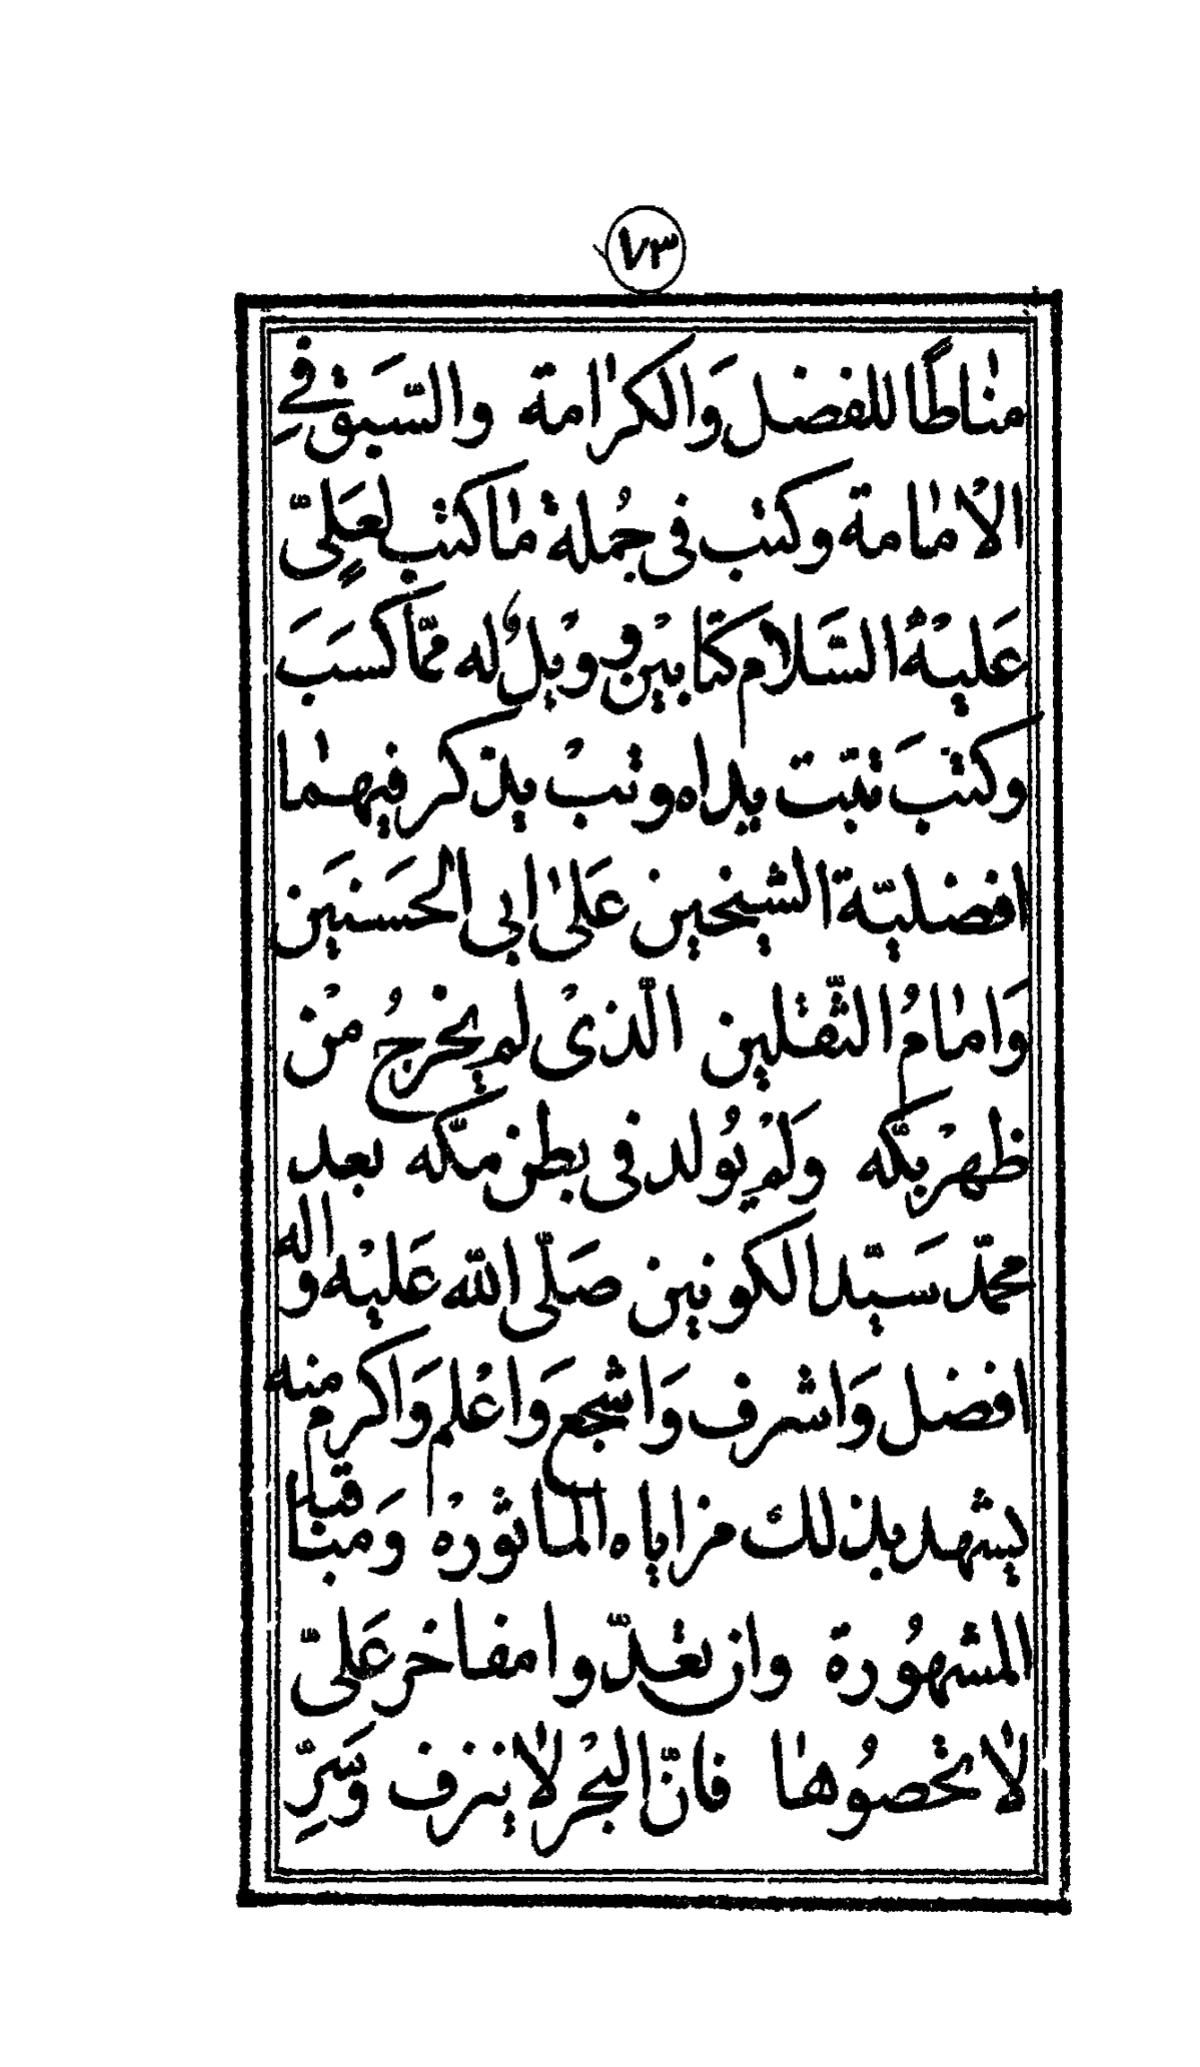 ٧٣
مناطًا للفضل وَالكرامة والسّبق في
الامامة وكتب في جُملة ما كتب لعَلِىّ
عَليهُ السَّلام كتابين وويلُ له ممّا كسَبَ
وكتبَ تبّت يداه وتبْ يذكر فيهما
افضليّة الشيخين عَلى ابى الحَسنَين
وَامامُ الثّقلين الّذىْ لم يخرجُ منْ
ظهْر بكّه ولَمْ يُولد فى بطن مكّه بعد
محمّد سَيّد الكونين صَلّى اللّه عَليْه واله
افضل وَاشرف وَاشجع وَاعْلم وَاكرم منه
يشهد بذلك مزاياه الماثورهْ وَمناقبه
المشهُورة وان تعْدّوا مفاخر عَلىّ
لا تحصوُها فانّ البحْر لا ينزف وَسِرّ